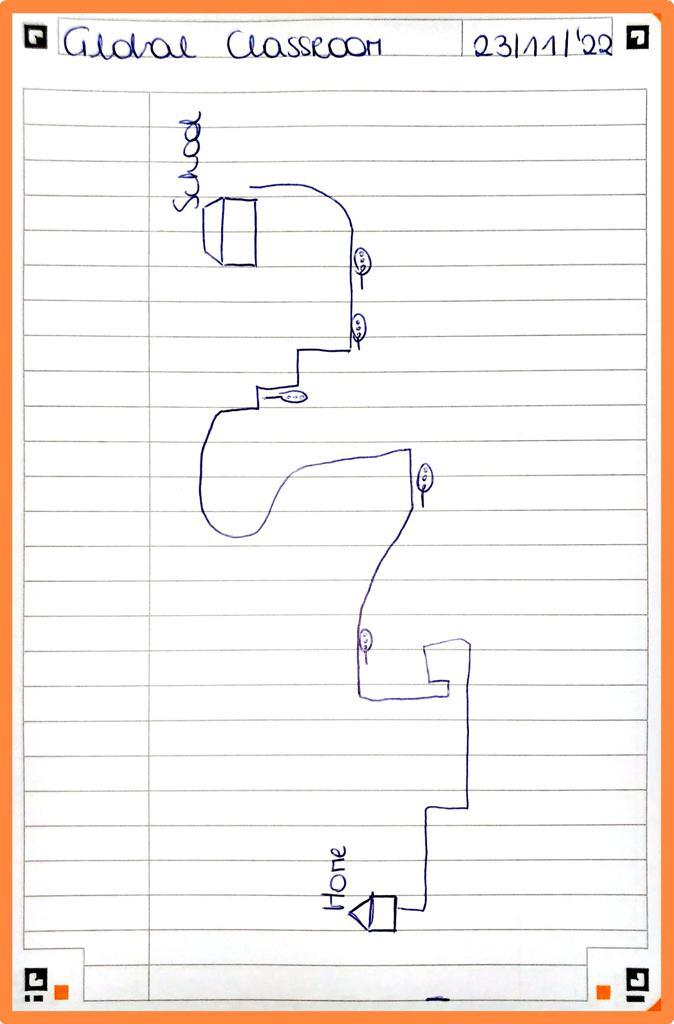 Global Classroom 23/11/'22
School
Home